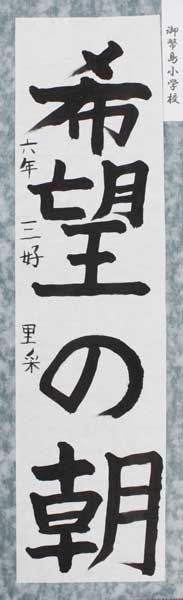 御幣島小学校
希望の朝
六年 三好 里采